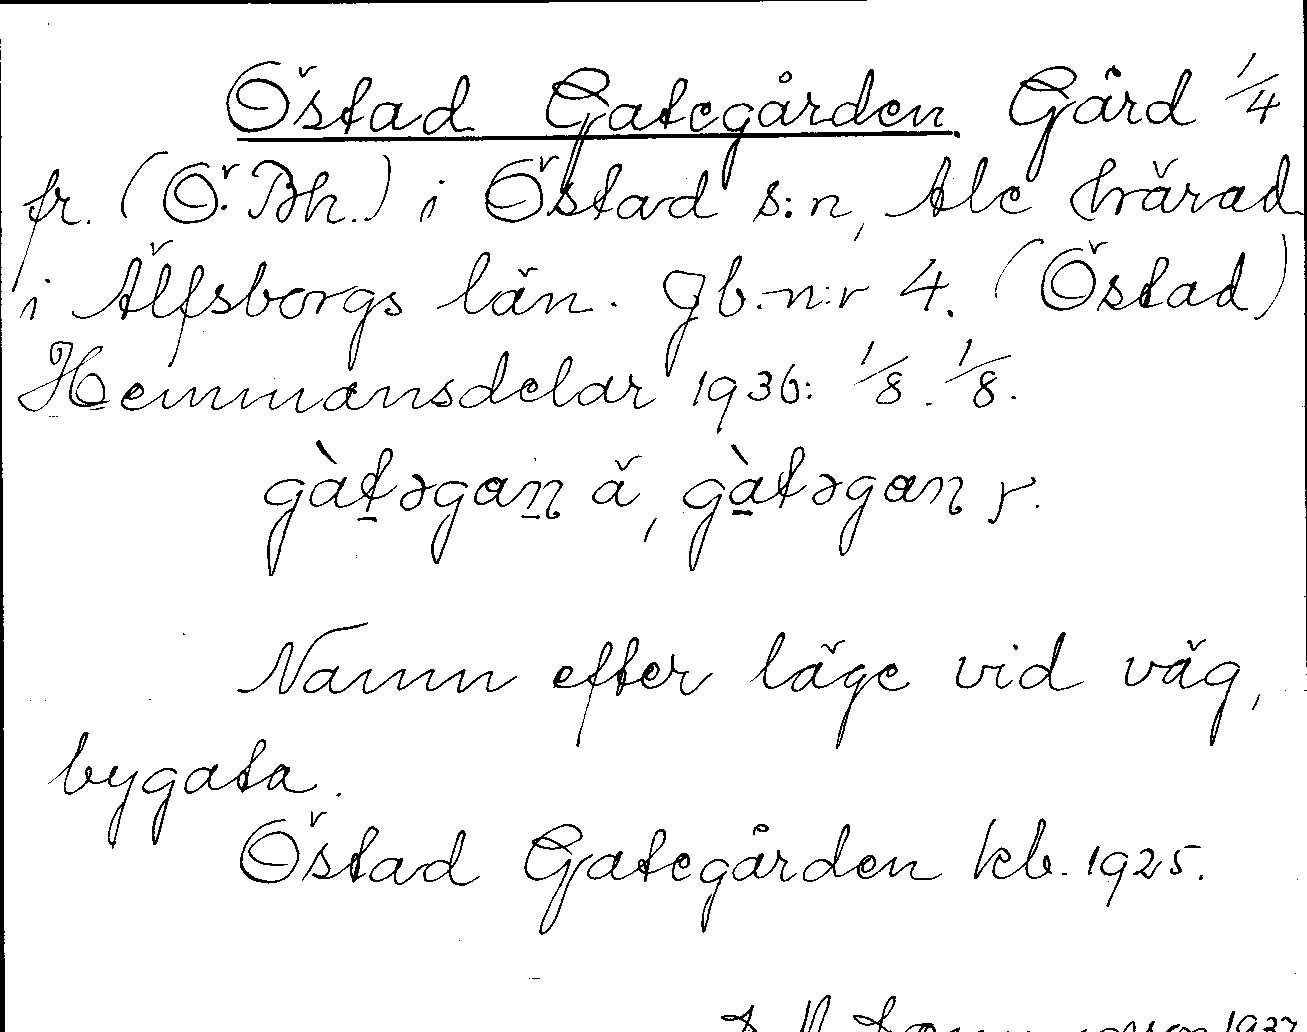 Östad Gategården. Gård 1/4
fr. (Ö. Bh.) i Östad s:n, Ale härad
i Älfsborgs län. Jb.-n:r 4. (Östad)
Hemmansdelar 1936: 1/8. 1/8.
gàt̲əgan̲ ä, gà̲təgan y.
Namn efter läge vid väg,
bygata.
Östad Gategården kb. 1925.
1937